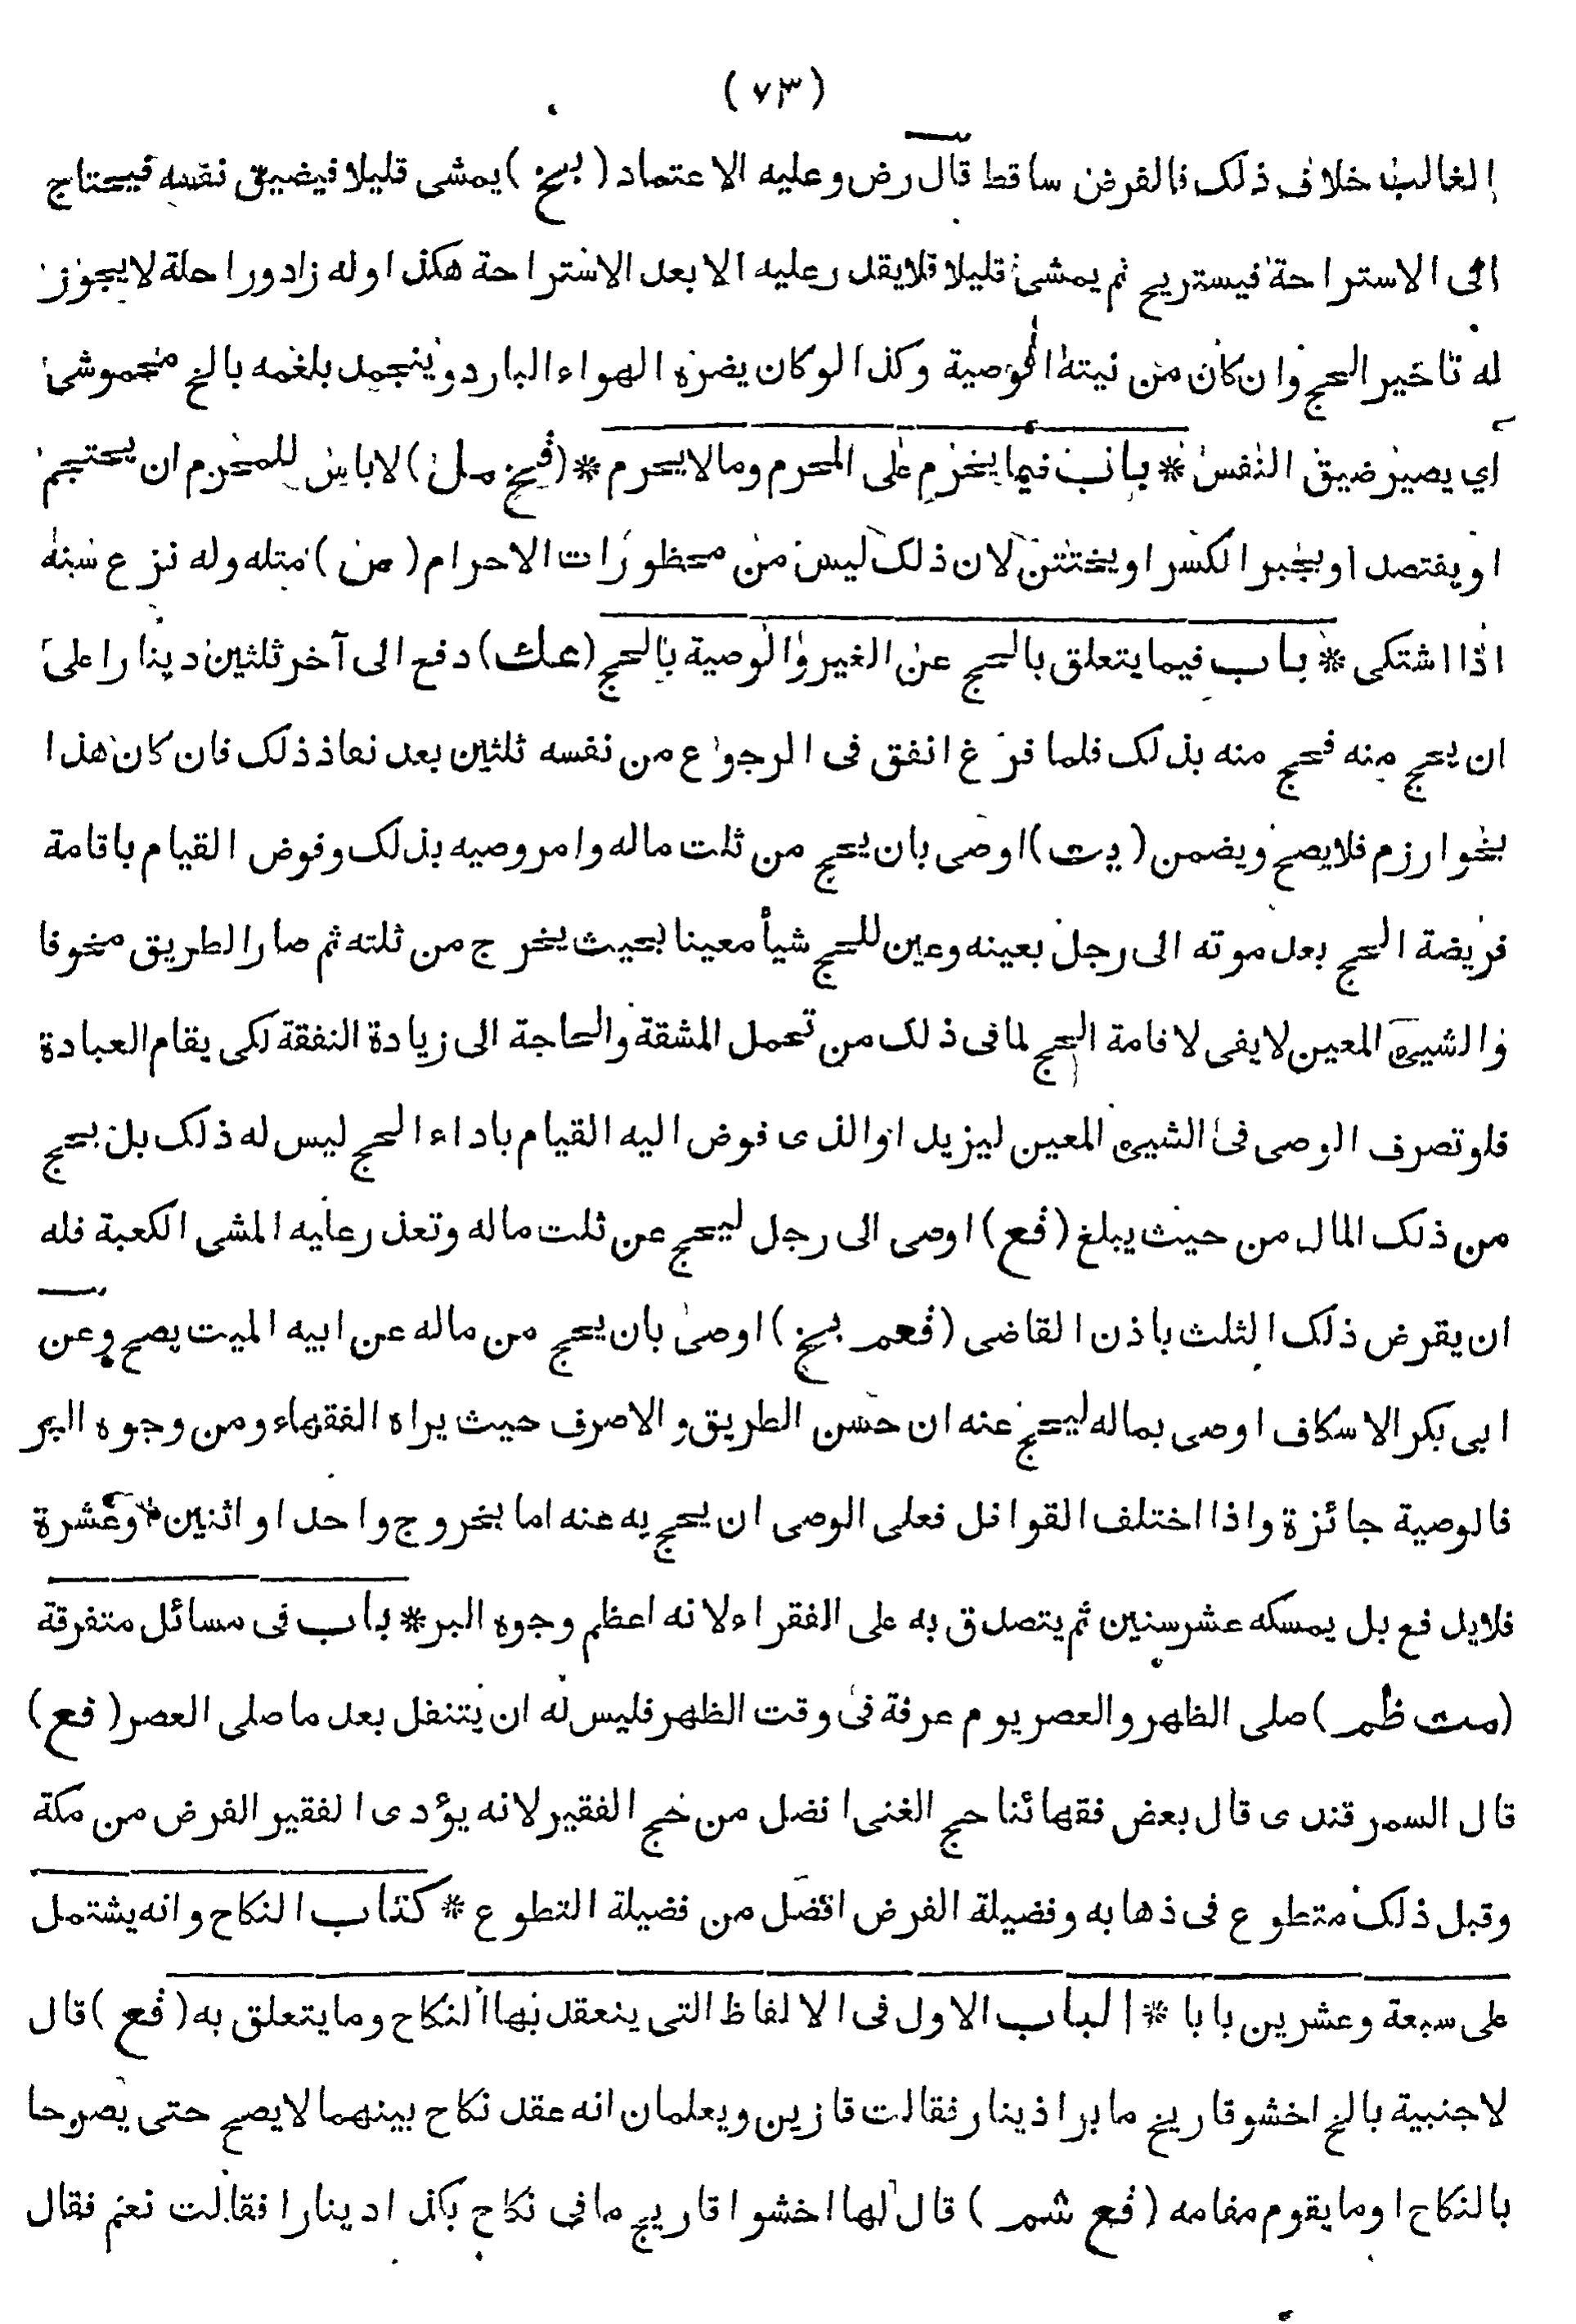 (٧٣)
الغالب خلاف ذلك فالفرض ساقط قال رض وعليه الاعتماد (بخ) يمشى قليلا فيضيق نفسه فيحتاج
الى الاستراحة فيستريح ثم يمشى قليلا فلا يقدر عليه الا بعد الاستراحة هكذا وله زاد وراحلة لا يجوز
له تاخير الحج وان كان من نيته الوصية وكذا لو كان يضره الهواء البارد وينجمد بلغمه بالخ
اى يصير ضيق النفس * باب فيما يحرم على المحرم وما لا يحرم * (فخ مل) لا باس للمحرم ان يحتجم
او يفتصد او يجبر الكسر او يختتن لان ذلك ليس من محظورات الاحرام (من) مثله وله نزع سنه
اذا اشتكى * باب فيما يتعلق بالحج عن الغير والوصية بالحج (عك) دفع الى آخر ثلثين دينارا على
ان يحج منه فحج منه بذلك فلما فرغ انفق فى الرجوع من نفسه ثلثين بعد نفاذ ذلك فان كان هذا
بخوارزم فلا يصح ويضمن (يت) اوصى بان يحج من ثلث ماله وامر وصيه بذلك وفوض القيام باقامة
فريضة الحج بعد موته الى رجل بعينه وعين للحج شيأ معينا بحيث يخرج من ثلثه ثم صار الطريق مخوفا
والشيئ المعين لا يفى لاقامة الحج لما فى ذلك من تحمل المشقة والحاجة الى زيادة النفقة لكى يقام العبادة
فلو تصرف الوصى فى الشيئ المعين ليزيد او الذى فوض اليه القيام باداء الحج ليس له ذلك بل يحج
من ذلك المال من حيث يبلغ (فع) اوصى الى رجل ليحج عن ثلث ماله وتعذر عليه المشى الكعبة فله
ان يقرض ذلك الثلث باذن القاضى (فعم بخ) اوصى بان يحج من ماله عن ابيه الميت يصح وعن
ابى بكر الاسكاف اوصى بماله ليحج عنه ان حسن الطريق والا صرف حيث يراه الفقهاء ومن وجوه البر
فالوصية جائزة واذا اختلف القوافل فعلى الوصى ان يحج به عنه اما بخروج واحد او اثنين وعشرة
فلا يدفع بل يمسكه عشر سنين ثم يتصدق به على الفقراء لانه اعظم وجوه البر * باب فى مسائل متفرقة
(مت ظم) صلى الظهر والعصر يوم عرفة فى وقت الظهر فليس له ان يتنفل بعد ما صلى العصر (فع)
قال السمرقندى قال بعض فقهائنا حج الغنى افضل من حج الفقير لانه يؤدى الفقير الفرض من مكة
وقبل ذلك متطوع فى ذهابه وفضيلة الفرض افضل من فضيلة التطوع * كتاب النكاح وانه يشتمل
على سبعة وعشرين بابا * الباب الاول فى الالفاظ التى ينعقد بها النكاح وما يتعلق به (فع) قال
لاجنبية بالخ اخشوقاريخ مابراذينار فقالت قازين ويعلمان انه عقد نكاح بينهما لا يصح حتى يصرحا
بالنكاح او ما يقوم مقامه (فع شم) قال لها اخشوا قاريج مافى نكاح بكذا دينارا فقالت نعم فقال